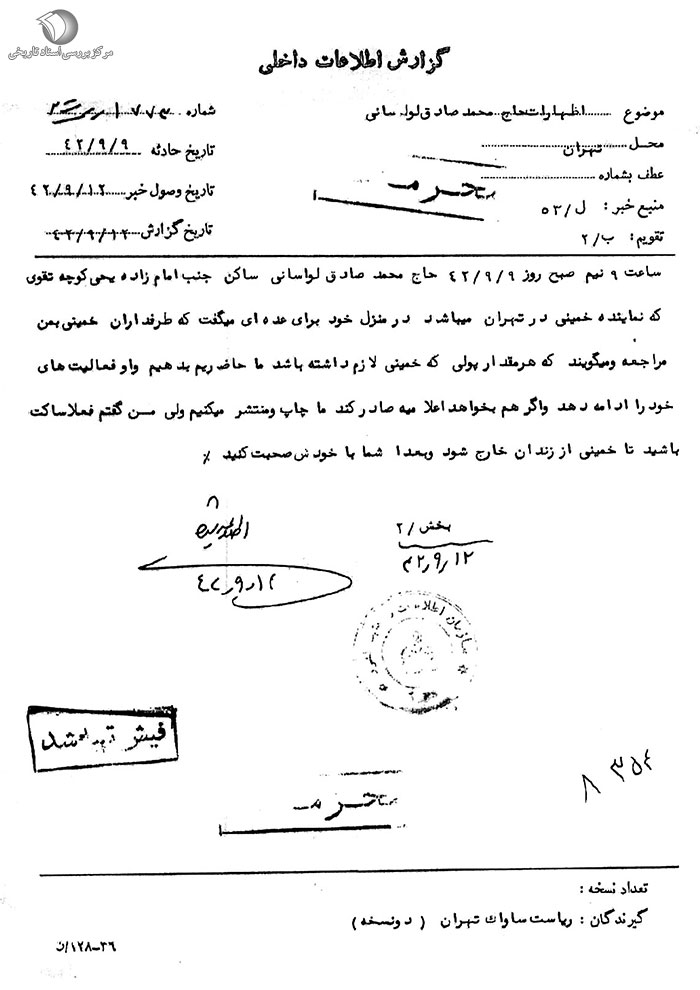 مرکز بررسی اسناد تاریخی
گزارش اطلاعات داخلی
موضوع اظهارات حاج محمد صادق لواسانی
شماره
محل تهران
تاریخ حادثه ۴۲/۹/۹
عطف بشماره
منبع خبر: ل/۵۳
تاریخ وصول خبر ۴۲/۹/۱۲
تقویم: ب/۲
تاریخ گزارش ۴۲/۹/۱۲
ساعت ۹ نیم صبح روز ۴۲/۹/۹ حاج محمد صادق لواسانی ساکن جنب امام زاده یحی کوچه تقوی
که نماینده خمینی در تهران میباشد در منزل خود برای عده ای میگفت که طرفداران خمینی بمن
مراجعه ومیگویند که هر مقدار پولی که خمینی لازم داشته باشد ما حاضریم بدهیم واو فعالیت های
خود را ادامه دهد واگر هم بخواهد اعلامیه صادر کند ما چاپ ومنتشر میکنیم ولی من گفتم فعلا ساکت
باشید تا خمینی از زندان خارج شود وبعدا شما با خودش صحبت کنید ٪
بخش/۲
۴۲٫۹٫۱۲
۴۲٫۹٫۱۲
سازمان اطلاعات و
فیش تهیه شد
۸ ۳۵۴
تعداد نسخه:
گیرندگان: ریاست ساواک تهران (دونسخه)
۳۶-۱۲۸/ن